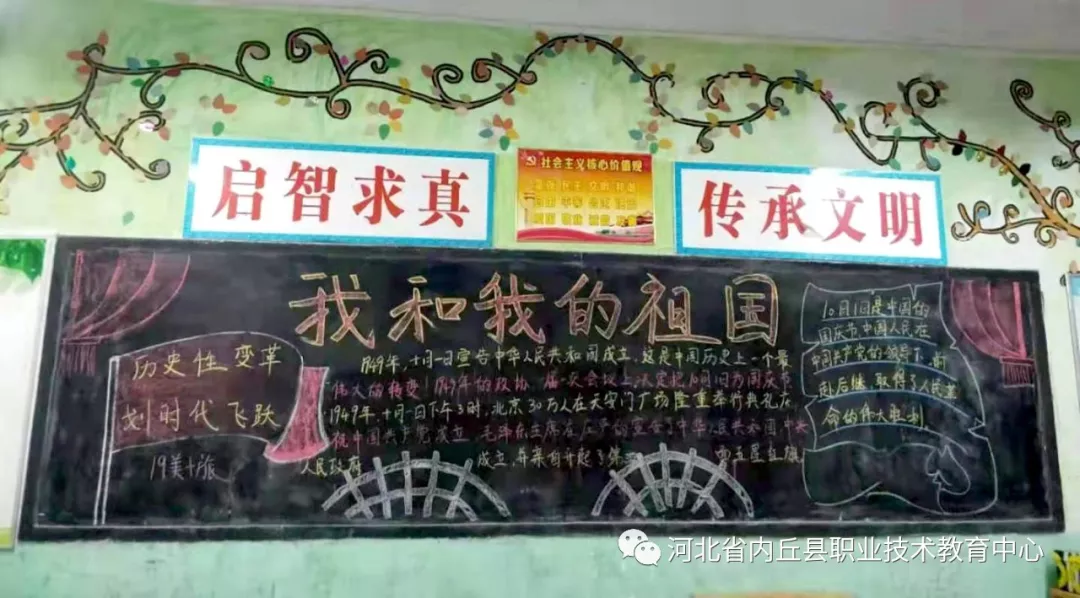 启智求真
社会主义核心价值观
传承文明
我和我的祖国
历史性变革
划时代飞跃
19美十旅
1949年,十月一日宣告中华人民共和国成立,这是中国历史上一个最
伟大的转变!1949年的政协 届一次会议上决定把10月1日为国庆节
1949年,十月一日下午3时,北京30万人在天安门广场隆重举行典礼庆
祝中国共产党成立 毛泽东主席在庄严的宣告了中华人民共和国中央
人民政府 成立,并亲自升起了第一 面五星红旗
10月1日是中国的
国庆节中国人民在
中国共产党的领导下,前
赴后继,取得了人民革
命的伟大胜利
河北省内丘县职业技术教育中心